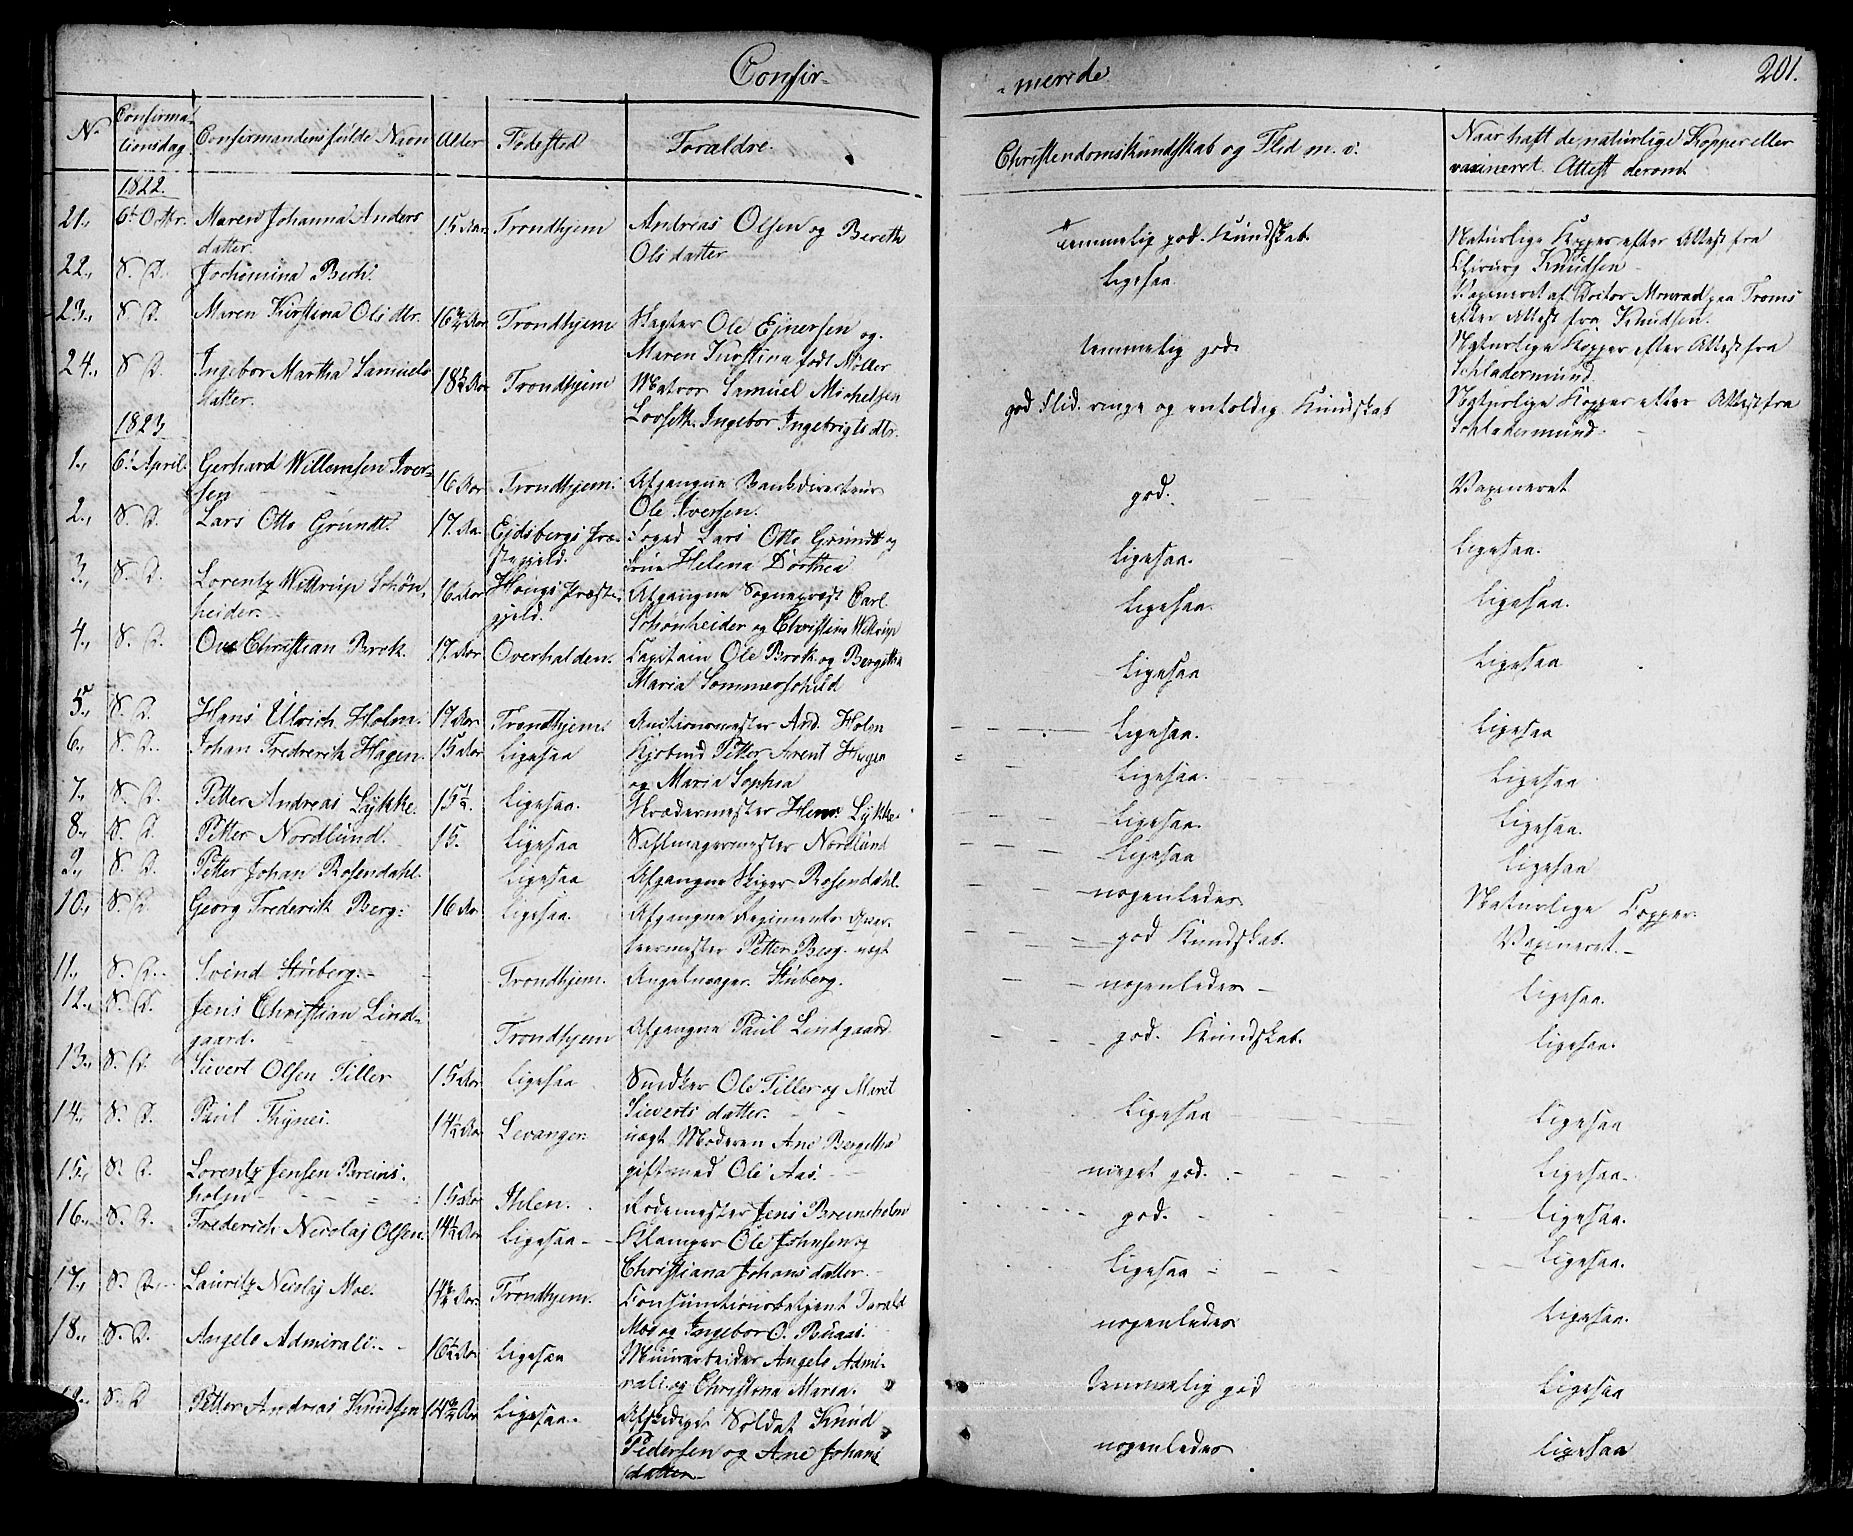 Confir-
-merede
201.
No
Confirma-
tionsdag
Confirmandens fulde Navn
Alder
Fødested
Forældre.
Christendomskundskab og Flid m. v.
Naar haft de naturlige Kopper eller
vaxineret. Attest derom
1822.
21., 6t Octbr. Maren Johanna Anders 15 Aar Trondhjem Andreas Olsen og Bereth
datter. Olsdatter
temmelig god Kundskab.
Naturlige Kopper efter Attest fra
Chirurg Knudsen
22., S. D. Jochomina Berh.
Ligesaa.
Vaxineret af Doctor Monrad paa Troms
efter Attest fra Knudsen.
23., S. D. Maren Kirstina Olsdtr. 16 3/4 Aar Trondhjem Ole Ejnersen og
Maren Kirstina født Møller
temmelig god.
Naturlige Kopper efter Attest fra
Schladermund.
24., S. D. Ingebor Martha Samuels 18 1/2 Aar Trondhjem Matros Samuel Michelsen
datter. Ingebor Ingebrigtsdtr.
god Flid. ringe og enfoldig Kundskab
Naturlige Kopper efter Attest fra
Schladermund.
1823
1., 6t April. Gerhard Willemsen Iver- 16 Aar Trondhjem. Afgangne Bankdirecteur
sen Ole Iversen.
god.
Vaxineret
2., S. D. Lars Otto Grundt. 17 Aa. Ejdsbergs Præ- Foged Lars Otto Grundt og
stegjeld. Frue Helena Dorthea
Ligesaa.
Ligesaa.
3., S. D. Lorentz Wittrup Schøn- 16 Aar Præste- Afgangne Sogneprest Carl
heider. gjeld. Schønheider og Christina Wittrup
Ligesaa.
Ligesaa.
4., S. D. Ove Christian Brok. 17 Aar. Overhalden. Capitain Ole Brok og Bergitha
Maria Sommerschild
Ligesaa
Ligesaa
5., S. D. Hans Ulrich Holm. 17 Aar Trondhjem. Auctionsmester And. Holm
Ligesaa.
Ligesaa
6., S. D. Johan Fredrerik Hagen. 15 Aar Ligesaa Kjøbmd Petter Arent Hagen
og Maria Sophia
Ligesaa.
Ligesaa
7., S. D. Petter Andreas Lykke. 15 1/2. Ligesaa. Skrædermester Henr. Lykke.
Ligesaa.
Ligesaa.
8., S. D. Petter Nordlund. 15. Ligesaa Sadlmagermester Nordlund
Ligesaa
Ligesaa
9., S. D. Petter Johan Rosendahl. Ligesaa Afgangne Skiper Rosendahl.
nogenledes
Naturlige Kopper.
10., S. D. Georg Frederik Berg. 16 Aa. Ligesaa. Afgangne Regiments Qvar-
teermester Petter Berg.
god Kundskab.
Vaxineret.
11., S. D. Svend Stuberg. Trondhjem. Stuberg.
nogenledes
Ligesaa.
12., S. D. Jens Christian Lind-
gaard. Trondhjem Afgangne Paul Lindgaard.
god. Kundskab.
Ligesaa.
13., S. D. Sivert Olsen Tiller 15 Aar Ligesaa Snedker Ole Tiller og Maret
Sieverts datter.
Ligesaa
Ligesaa
14., S. D. Paul Thynes. 14 1/2 Aar Levanger. uægt Moderen Ane Bergitha
gift med Ole Aas.
meget god.
Ligesaa.
15., S. D. Lorentz Jensen Breins-
holm 15 Aar Ihlen. Rodemester Jens Breinsholm
god.
Ligesaa.
16., S. D. Frederich Nicolaj Olsen. 14 1/2 Aar Ligesaa Ole Johnsen og
Christiana Johansdatter.
Ligesaa
Ligesaa.
17., S. D. Lauritz Nicolaj Moe. 14 3/4 Aar. Trondhjem. Consumtionsbetjent
Moe og Ingebor O. Buaas.
nogenledes
Ligesaa.
18., S. D. Angelo Admirali. 16 1/2 Aar Ligesaa Muurarbeider Angelo Admi-
rali og Christina Maria.
temmelig god
Ligesaa
19., S. D Petter Andreas Knudsen 14 3/4 Aar Ligesaa. Afskediget Soldat Knud
Pedersen og Ane Johans
datter
nogenledes
Ligesaa